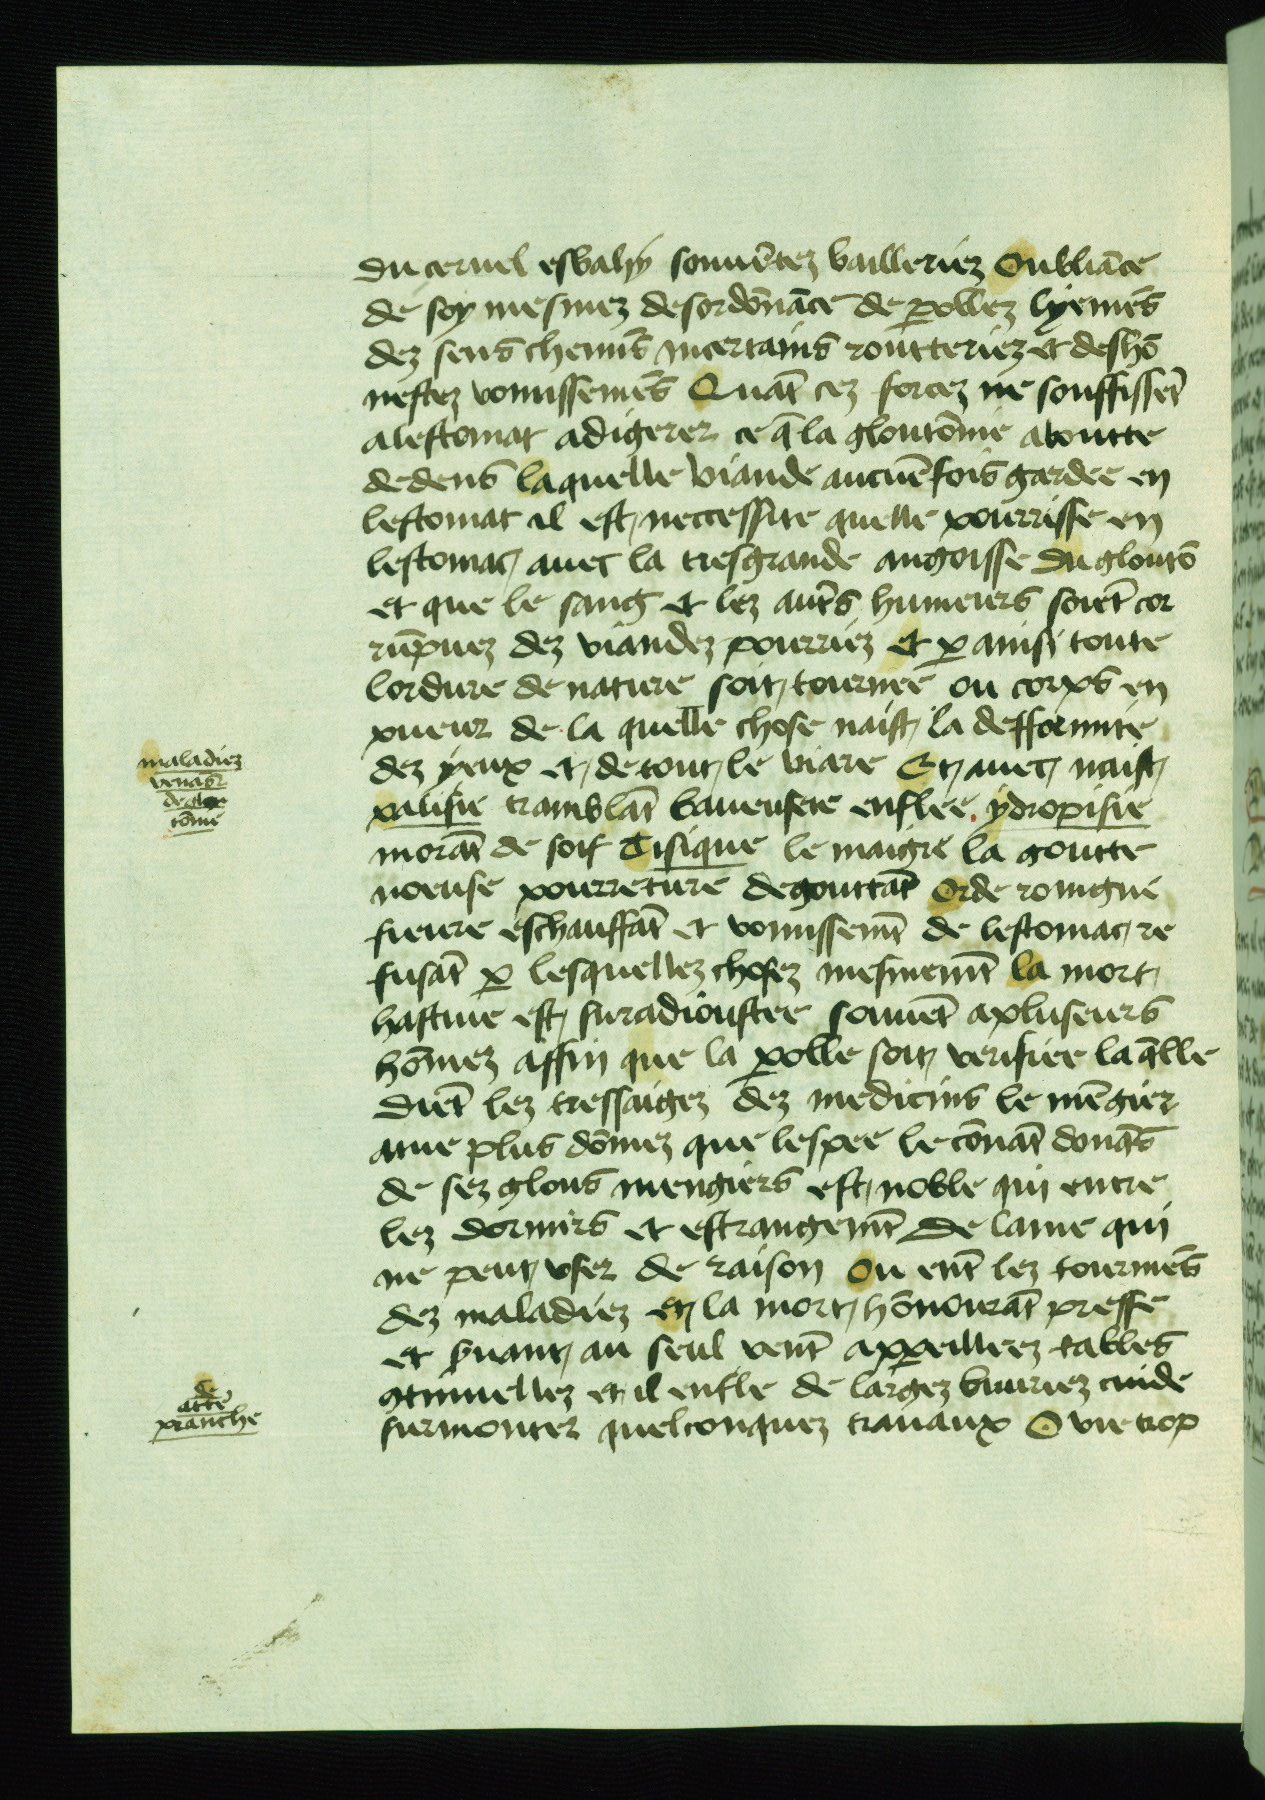 du cervel esbahy souvētez bailleriez Oubliāce
de soy mesmez desordōnāce de p̱ollez lyemēs
dez sens chemīs incertains routteriez et deshō
nestez vomissemēs Quāt cez forcez ne souffissēt
a lestomat a digerer ce q̄ la gloutōnie a boutte
dedens laquelle viande aucunēfois gardee en
lestomat il est neccessite quelle pourrisse en
lestomac avec la tresgrande angoisse du gloutō
et que le sang et lez autr̄s humeurs soiēt cor
rūpuez dez viandez pourriez et p̱ ainsi toute
lordure de nature soit tournee ou corps en
pueur de la quelle chose naist la defformite
dez yeux et de tout le viare Et avec naist
palisie tramblāt baveusete enflee ydropisie
morāt de soif Tisique le maigre la goutte
noeuse pourreture degouttāt Orde roingne
fievre eschauffāt et vomissemt̄ de lestomac re
fusāt p̱ lesquellez chosez mesmemt̄ la mort
hastive est suradioustee souvēt a pluseurs
hōmez affin que la p̱olle soit verifiee la q̄lle
diēt lez tressaigez dez medicins le mēgier
a tue plus dōmez que lespee le cōvāt donq̄s
de sez glous mengiers est noble qui entre
lez dormirs et estrangemt̄ de lame qui
ne peut user de raison Ou ent̄ lez tourmēs
dez maladiez en la mort hōnourāt presse
et s̄vant au seul vent̄ app̱eilleez tables
ꝯtinuellez et il enfle de largez buvriez cuide
surmonter quelconquez travaux O vie trop
maladiez
venās
de glou
tōnie
de
atte
pranche